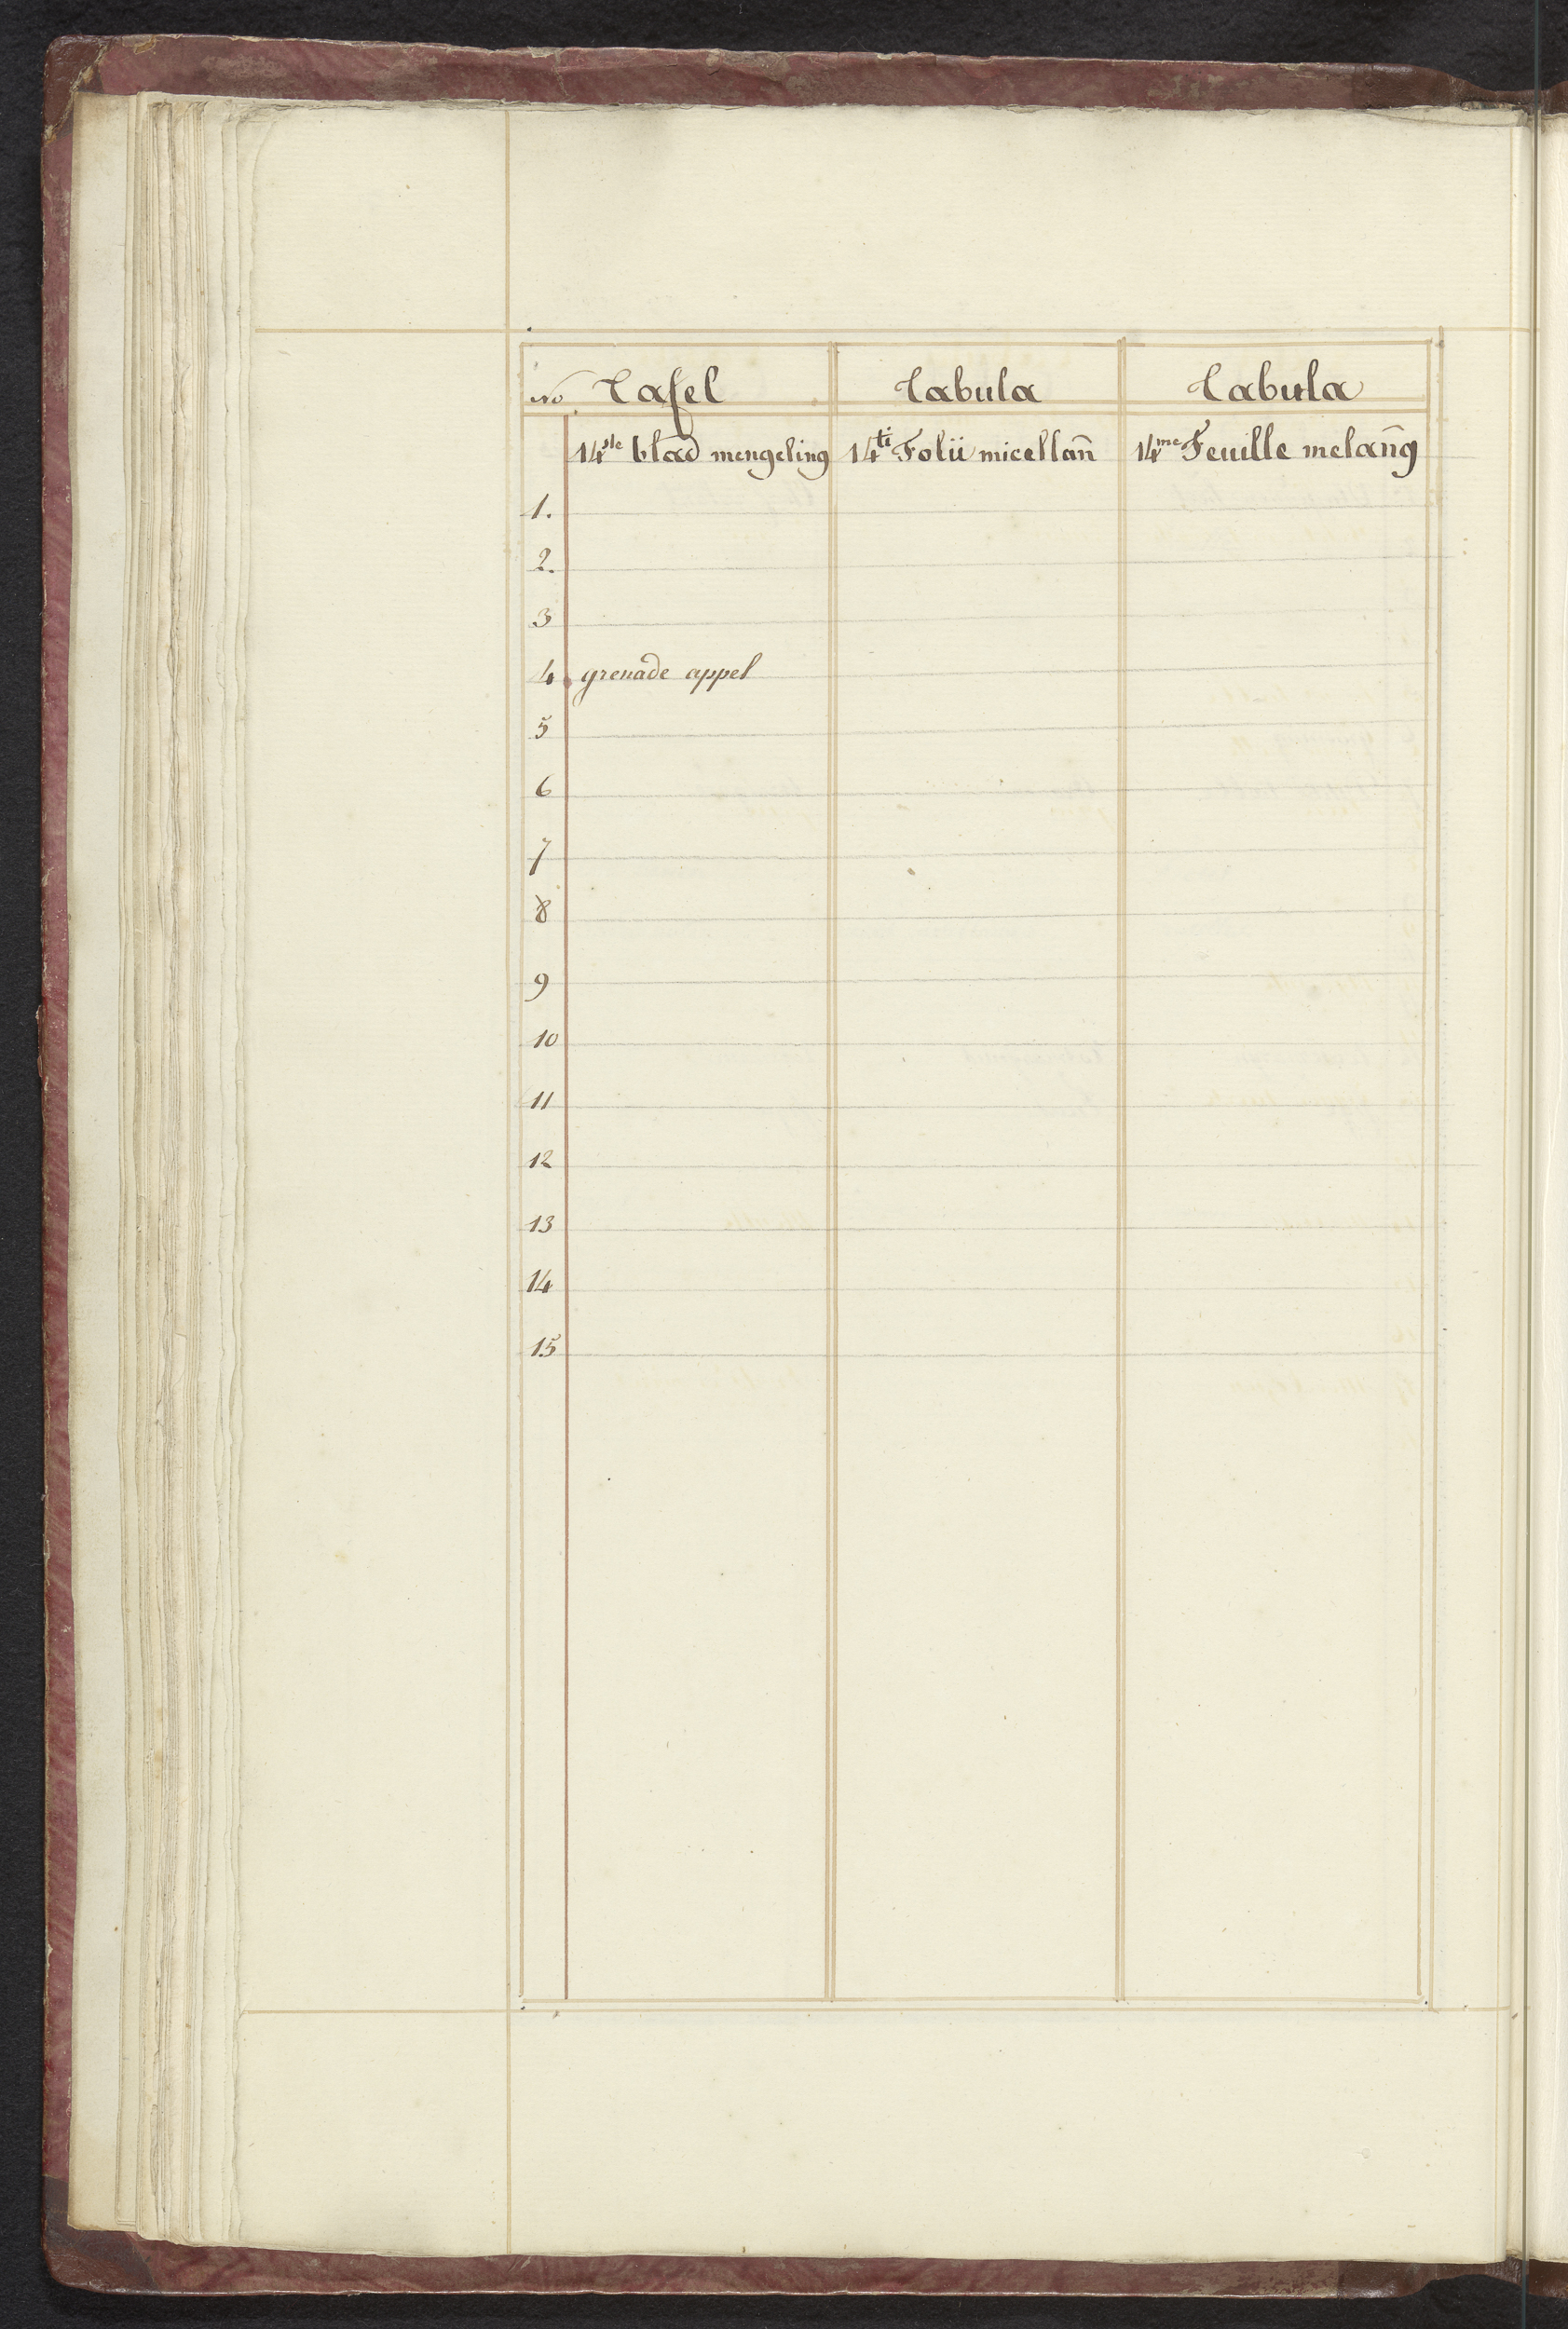 No Tafel Tabula Tabula
14ste blad mengeling 14ti Folii micellañ 14me Feuille melañg
1.
2.
3
4 grenade appel
5
6
7
8
9
10
11
12
13
14
15